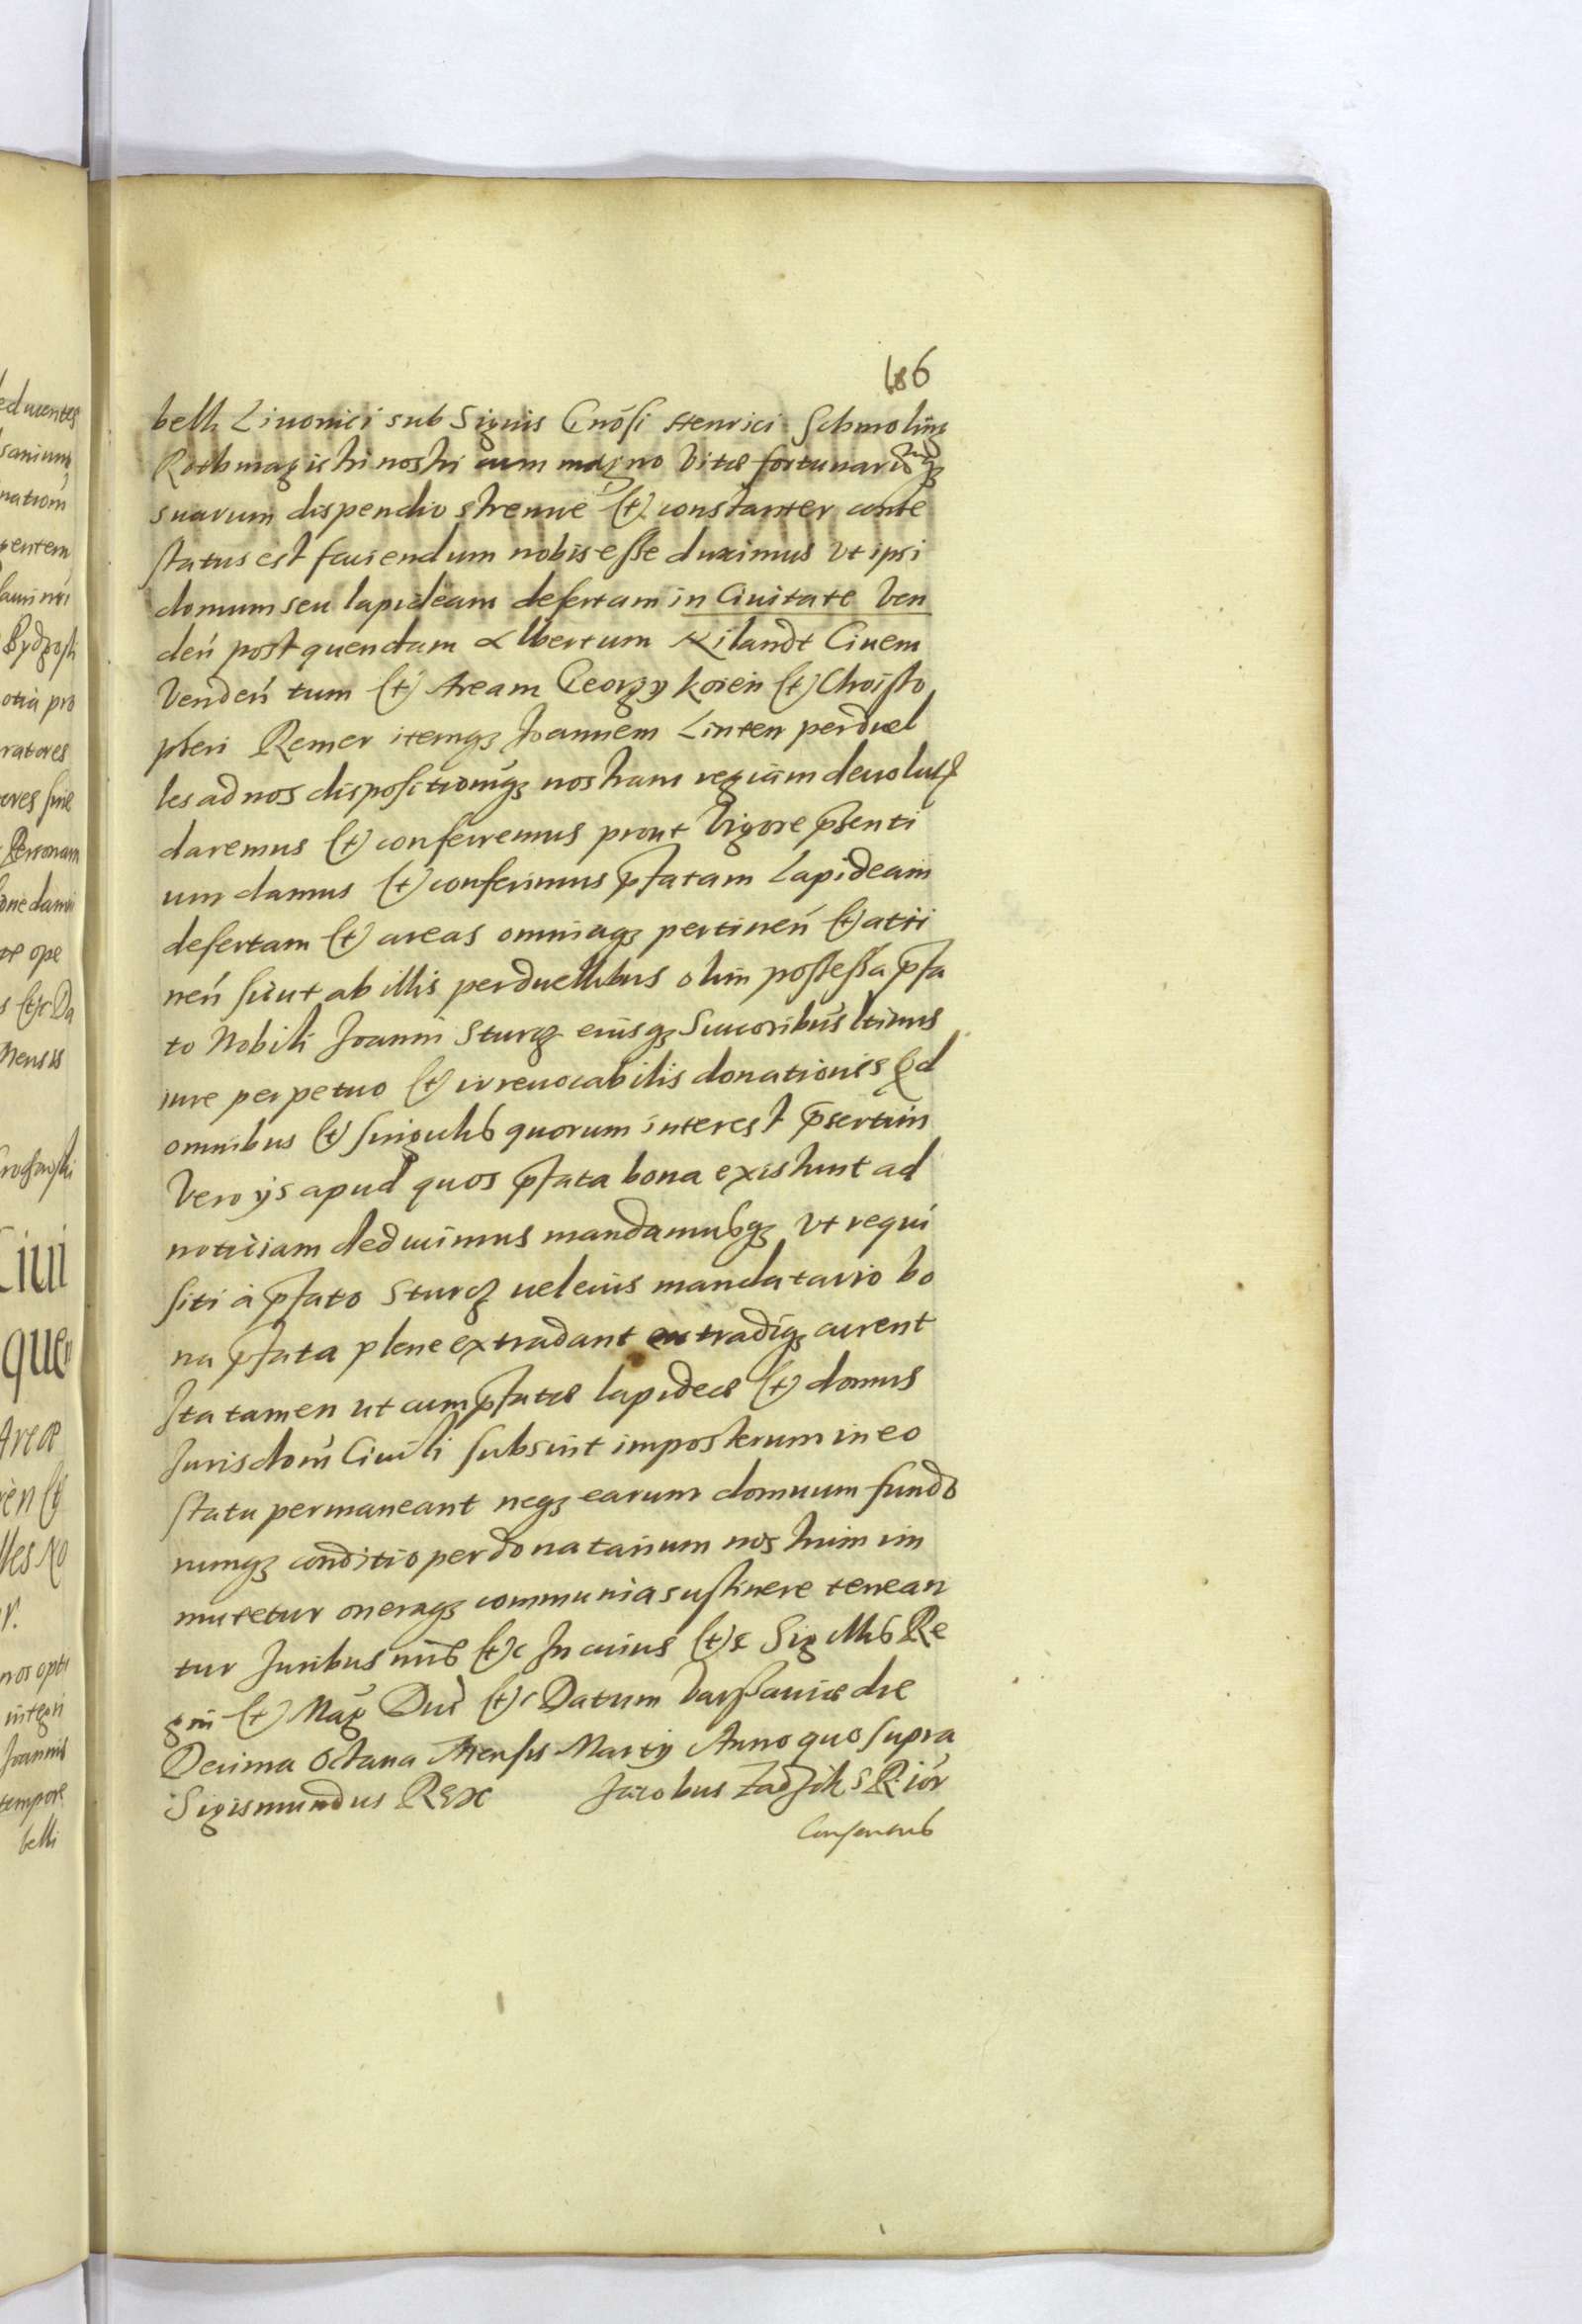 186
belli Liuonici sub Signis Gnõsi Henrici Schmoling
Rothmagistri nostri cum magno Vitæ fortunarūqꝫ
suarum dispendio strenue (et) constanter conte
status est faciendum nobis esse duximus Vt ipsi
domum seu lapideam desertam in Ciuitate Ven
deń post quendam Albertum Kilandt Ciuem
Vendeń tum (et) Aream Georgy korein (et) Christo
pheri Remer itemqꝫ Joannem Linten perduel
les ad nos dispositionẽqꝫ nostram regiam deuolut
daremus (et) conferremus prout Vigore p̃senti
um damus (et) conferimus p̃fatam Lapideam
desertam (et) areas omniaqꝫ pertineń (et) atti
neń sicut ab illis perduellibus olim possessa p̃fa
to Nobili Joanni Sturcz eiusqꝫ Succoribus ltimis
iure perpetuo (et) irreuocabilis donationis Qd
omnibus (et) singulis quorum interest p̃sertim
Vero ijs apud quos p̃fata bona existunt ad
notitiam deducimus mandamusqꝫ Vt requi
siti à p̃fato Sturcz uel eius mandatario bo
na p̃fata plene extradant extradiqꝫ curent
Ita tamen ut cum p̃fatæ lapideæ (et) domus
Jurisdoni Ciuili subsint imposterum in eo
statu permaneant neqꝫ earum domuum fundo
rumqꝫ conditio per donatarium nostrum im
mutetur oneraqꝫ communia sustinere tenean
tur Juribus nris (et)c In cuius (et)c Sigillis Re
gni (et) Mag Duc (et)c Datum Varssauiæ die
Decima Octaua Mensis Martij Anno quo supra
Sigismundus Rex Jacobus Zadzik S R: ior
educentes
nationi
Bydgosti
otia pro
ratores
Personam
ope
Mensis
Ciui
que
Areæ
nos opti
integri
Joannis
tempore
belli